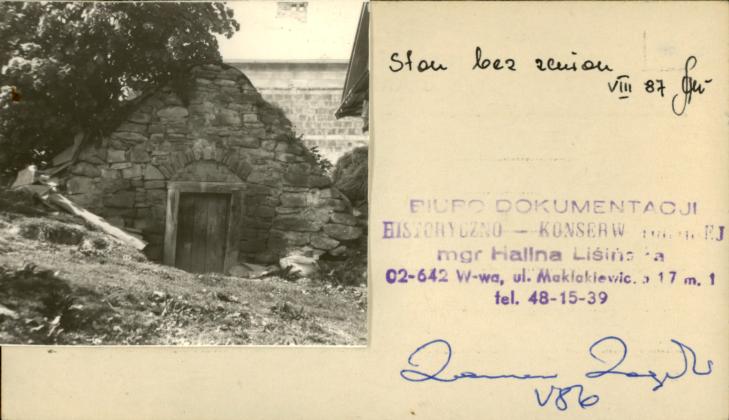 Stan bez zmian
VIII 87
BIURO DOKUMENTACJI
HISTORYCZNO — KONSERW EJ
mgr Halina Lisińska
02-642 W-wa, ul. Maklakiewicza 17 m. 1
tel. 48-15-39
V86